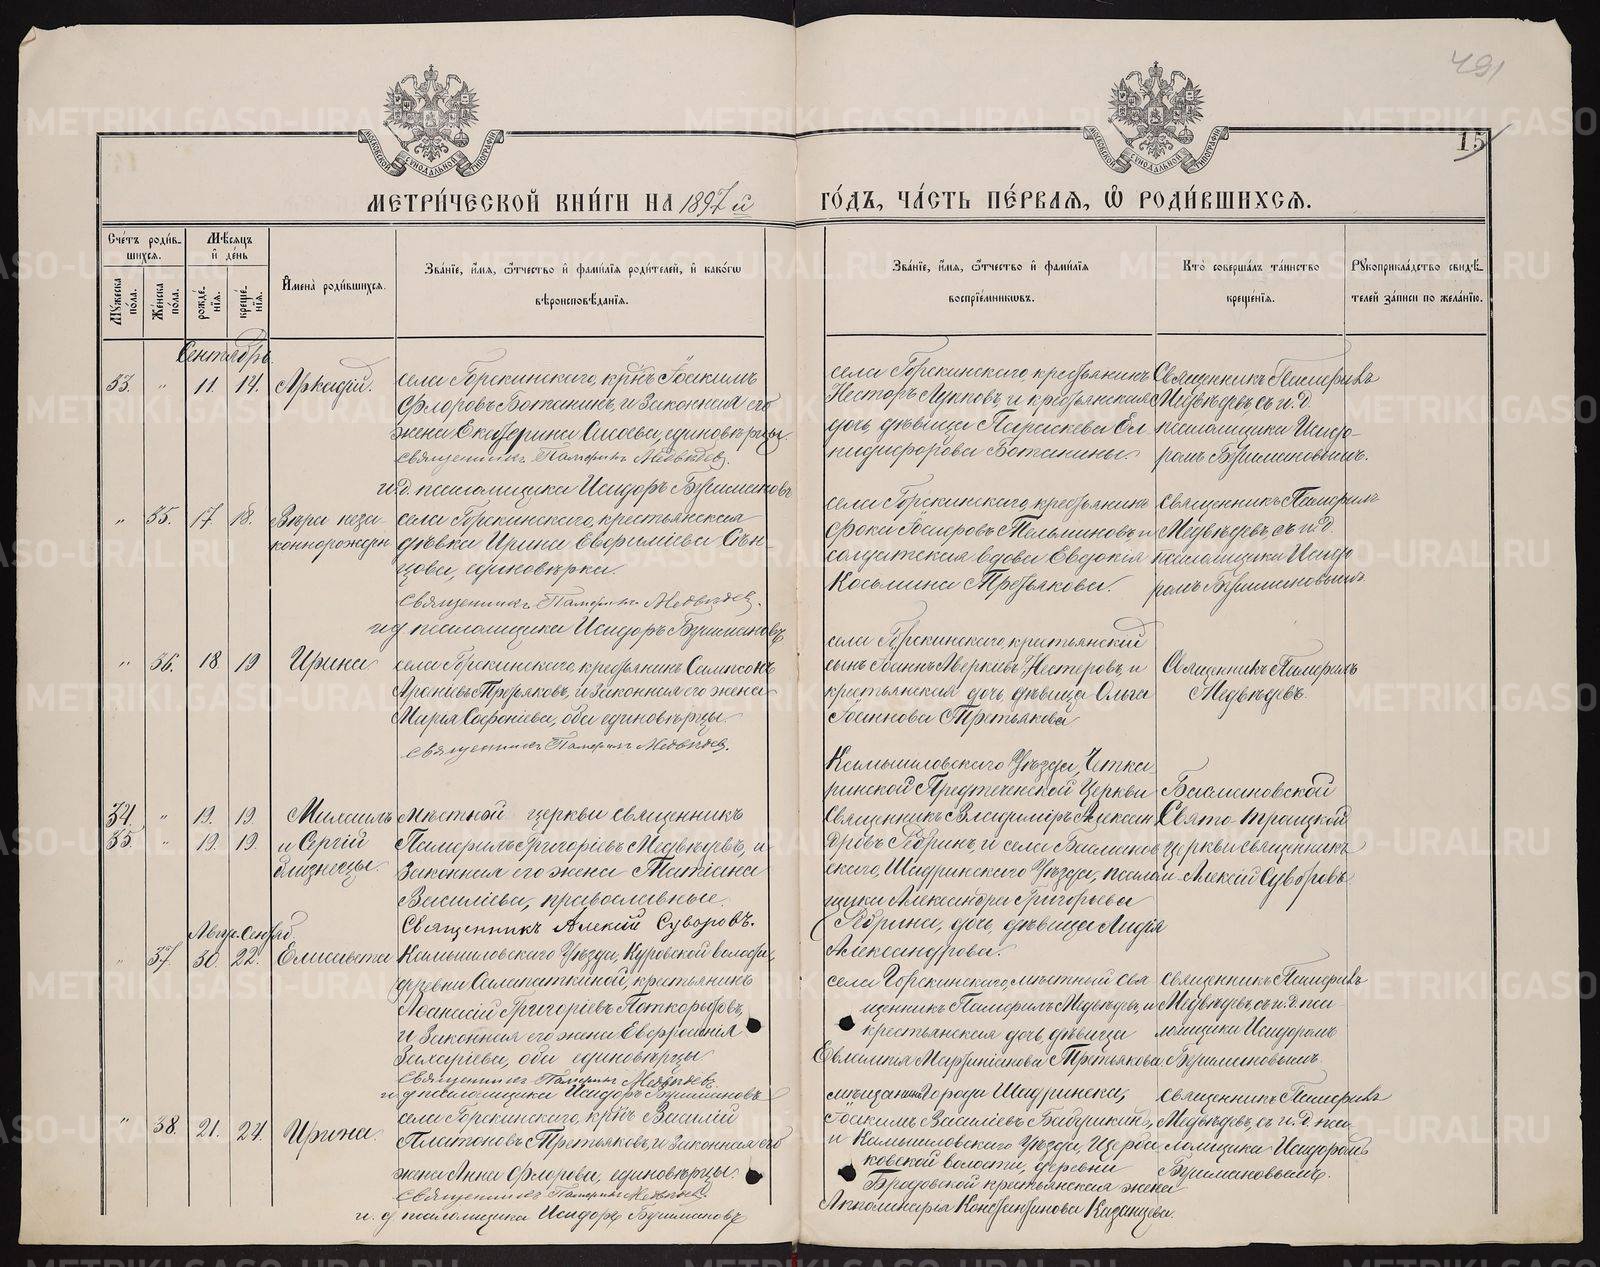 491
15
МЕТРИ́ЧЕСКОЙ КНИ́ГИ НА 1897 й ГО́ДЪ, ЧА́СТЬ ПЕ́РВАЯ, Ѡ РОДИ́ВШИХСЯ.
Сче́тъ роди́вшихся.
Му́жеска пола.
Же́нска пола.
Мѣ́сяцъ и де́нь
рожде́нїя.
креще́нїя.
И҆мена̀ роди́вшихся.
Зва́нїе, и҆́мя, ѻ҆́тчество и҆ фами́лїя роди́телей, и҆ како́гѡ вѣроисповѣ́данїя.
Зва́нїе, и҆́мя, ѻ҆́тчество и҆ фами́лїя воспрїе́мникѡвъ.
Кто̀ соверша́лъ та́инство креще́нїя.
Рꙋкоприкла́дство свидѣ́телей за́писи по жела́нїю.
Сентябрь.
33. " 11. 14. Аркадій.
села Горскинскаго, кр̃нъ Іоакимъ
Флоровъ Ботанинъ, и законная его
жена Екатерина Исаева, единовѣрцы.
Священникъ Памфилъ Медвѣдевъ.
и.д. псаломщика Исидоръ Бушмановъ
села Горскинскаго, крестьянинъ
Несторъ Лукковъ, и крестьянская
дочь дѣвица Параскева Ел
пидифорова Ботанины.
Священникъ Памфилъ
Медвѣдевъ съ и.д.
псаломщика Исидо-
ромъ Бушмановымъ.
" 35. 17. 18. Вѣра неза-
коннорожден
села Горскинскаго, крестьянская
дѣвка Ирина Евфиміева Сѣн-
цова, единовѣрка.
Священникъ Памфилъ Медвѣдевъ.
и д псаломщика Исидоръ Бушмановъ
села Горскинскаго, крестьянинъ
Фока Іосифовъ Тельминовъ и
солдатская вдова Евдокія
Косьмина Третьякова.
Священникъ Памфилъ
Медвѣдевъ, съ и.д.
псаломщика Исидо
ромъ Бушмановымъ
" 36. 18. 19 Ирина
села Горскинскаго, крестьянинъ Сампсонъ
Ароновъ Третьяковъ, и законная его жена
Марія Софоніева, оба единовѣрцы
Священникъ Памфилъ Медвѣдевъ.
села Горскинскаго, крестьянский
сынъ Іоаннъ Аверкіевъ Нестеровъ, и
крестьянская дочь дѣвица Ольга
Іоаннова Третьякова
Священникъ Памфилъ
Медвѣдевъ.
34. " 19. 19. Михаилъ
35. " 19. 19. и Сергій
близнецы.
мѣстной церкви священникъ
Памфилъ Григоріевъ Медвѣдевъ, и
законная его жена Татіана
Василіева, православные.
Священникъ Алексій Суворовъ.
Камышловскаго Уѣзда, Четка
ринской Предтеченской Церкви
Священникъ Владиміръ Алексан
дровъ Ребринъ, и села Басманов
скаго, Шадринскаго Уѣзда, псалом
щика Александра Григорьева
Ребрина, дочь дѣвица Лидія
Александрова.
Басмановской
Свято-троицкой
церкви священникъ
Алексій Суворовъ.
Авгу. Сентяб
" 37. 30. 22. Елисавета
Камышловскаго Уѣзда, Куровской волости,
деревни Салопаткиной, крестьянинъ
Аѳанасій Григоріевъ Поткорытовъ,
и законная его жена Евфросинія
Захаріева, оба единовѣрцы
Священникъ Памфилъ Медвѣдевъ.
и. д псаломщика Исидоръ Бушмановъ
села Горскинскаго, мѣстный Свя
щенникъ Памфилъ Медвѣдевъ, и
крестьянская дочь дѣвица
Евлампія Мартиніанова Третьякова
Священникъ Памфилъ
Медвѣдевъ, съ и.д. пса
ломщика Исидоромъ
Бушмановымъ.
" 38. 21. 24. Ирина.
села Горскинскаго, кр̃нъ Василій
Платоновъ Третьяковъ, и законная его
жена Анна Флорова, единовѣрцы.
Священникъ Памфилъ Медвѣдевъ.
и. д псаломщика Исидоръ Бушмановъ
мѣщанинъ города Шадринска,
Іоакимъ Василіевъ Бабушкинъ,
и Камышловскаго Уѣзда, Щерба
ковской волости, деревни
Бродовской крестьянская жена
Апполинарія Константинова Казанцева.
Священникъ Памфилъ
Медвѣдевъ, съ и.д. пса
ломщика Исидоромъ
Бушмановымъ.